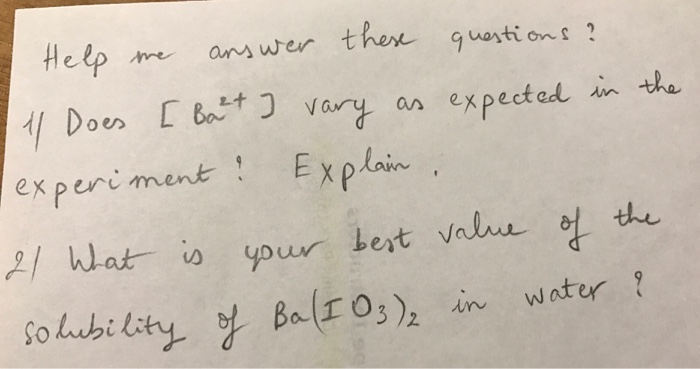 Help me answer these questions?
1/ Does [Ba²⁺] vary as expected in the
experiment? Explain.
2/ What is your best value of the
solubility of Ba(IO₃)₂ in water?